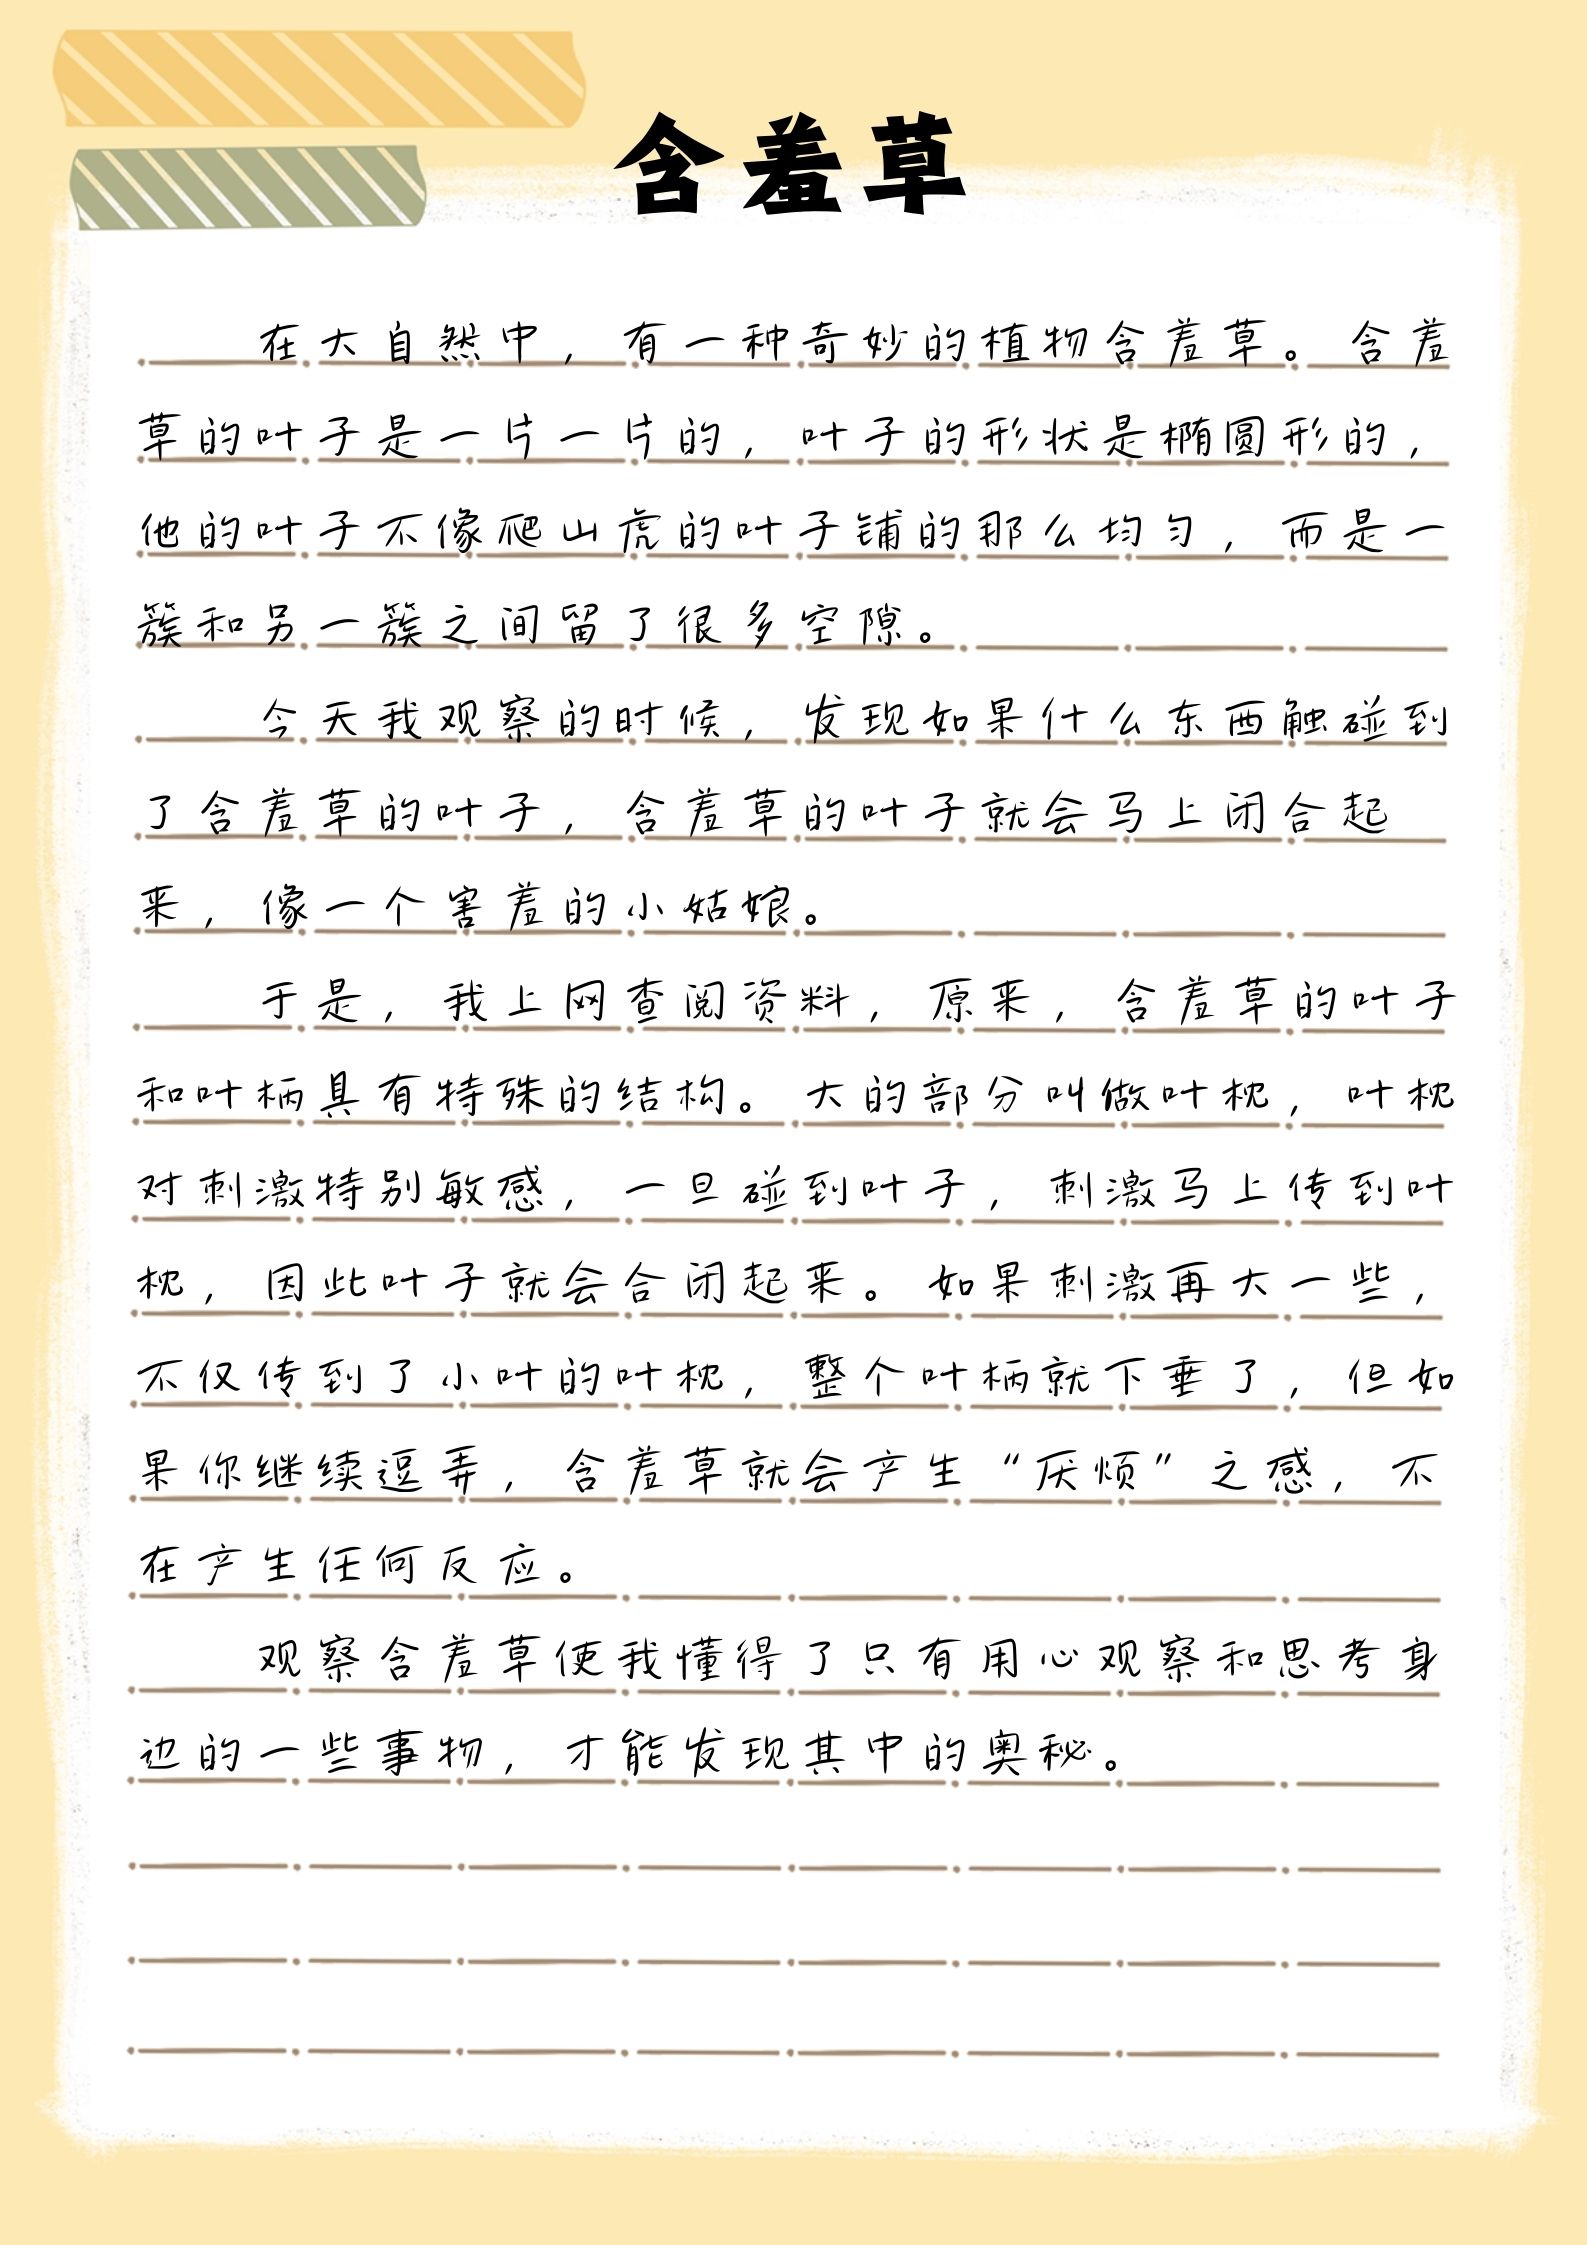 含羞草
在大自然中，有一种奇妙的植物含羞草。含羞
草的叶子是一片一片的，叶子的形状是椭圆形的，
他的叶子不像爬山虎的叶子铺的那么均匀，而是一
簇和另一簇之间留了很多空隙。
今天我观察的时候，发现如果什么东西触碰到
了含羞草的叶子，含羞草的叶子就会马上闭合起
来，像一个害羞的小姑娘。
于是，我上网查阅资料，原来，含羞草的叶子
和叶柄具有特殊的结构。大的部分叫做叶枕，叶枕
对刺激特别敏感，一旦碰到叶子，刺激马上传到叶
枕，因此叶子就会合闭起来。如果刺激再大一些，
不仅传到了小叶的叶枕，整个叶柄就下垂了，但如
果你继续逗弄，含羞草就会产生“厌烦”之感，不
在产生任何反应。
观察含羞草使我懂得了只有用心观察和思考身
边的一些事物，才能发现其中的奥秘。